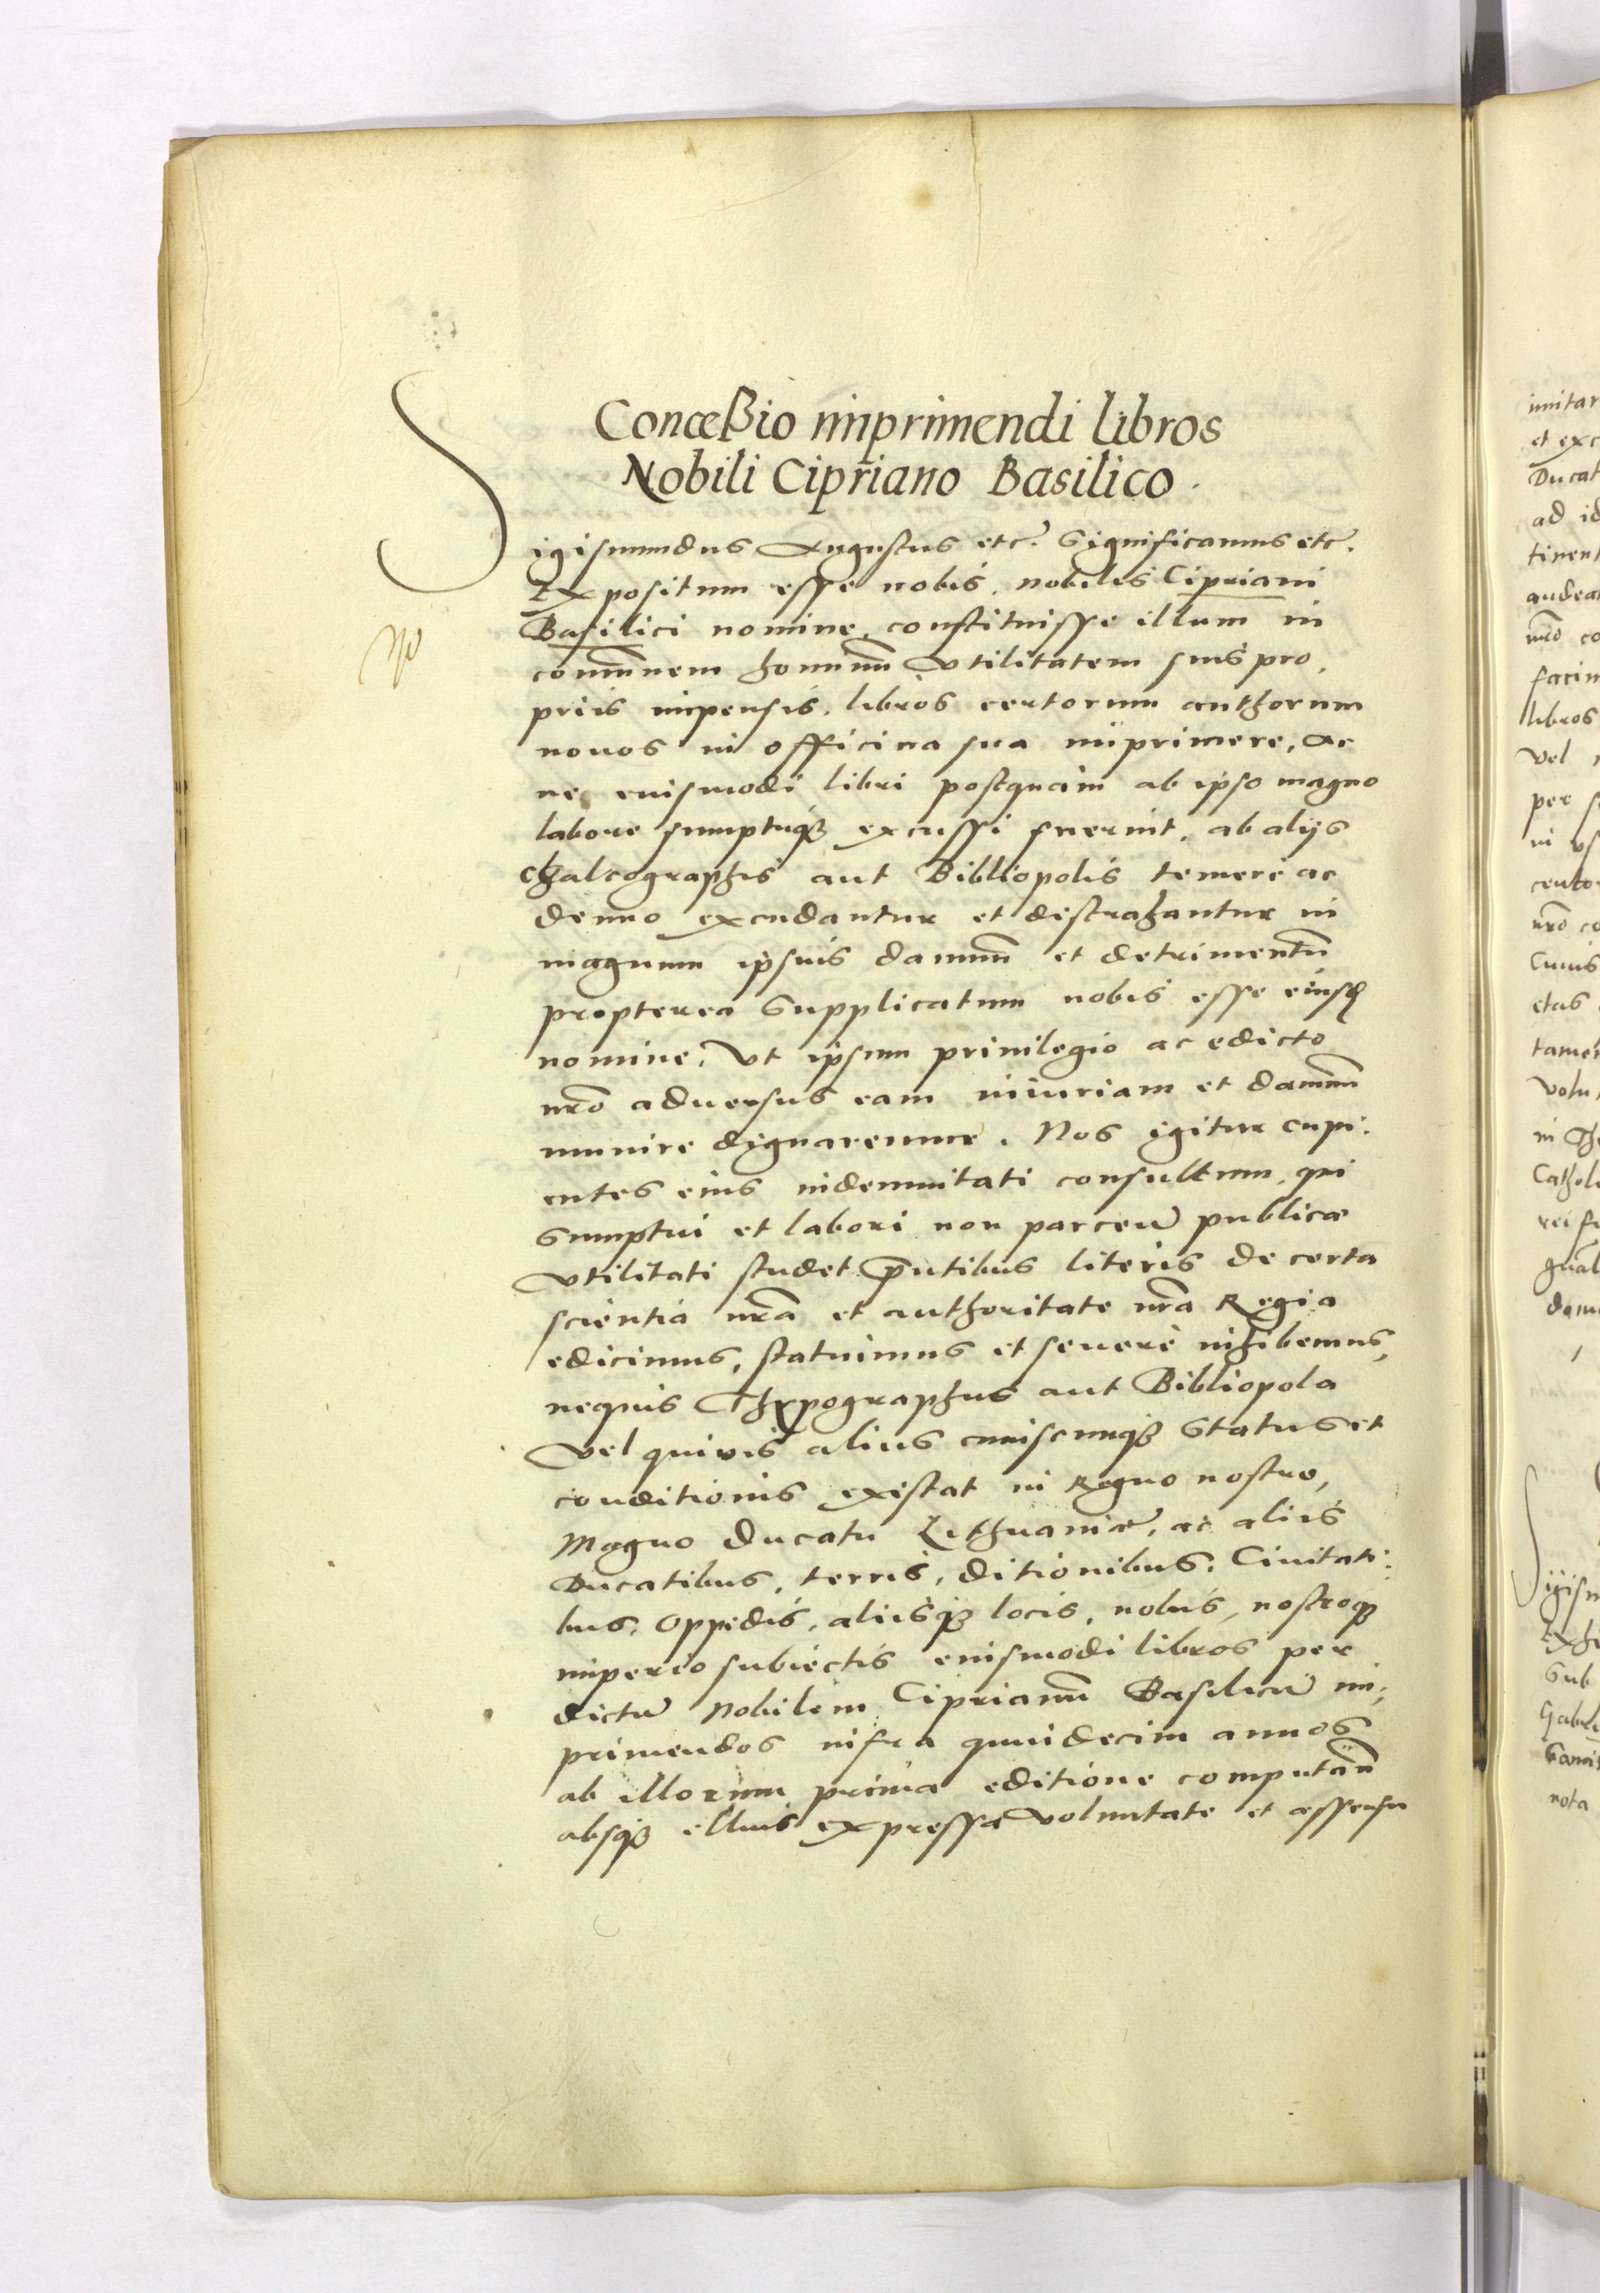 Conceßio imprimendi libros
Nobili Cipriano Basilico.
Sigismundus Augustus etc. Significamus etc.
Expositum esse nobis, nobilis Cipriani
Basilici nomine, constituisse illum in
com̄unem hominū vtilitatem suis pro,
priis impensis, libros certorum authorum
nouos in officina sua imprimere, Ac
ne eiusmodi libri postquam ab ipso magno
labore sumptuqꝫ excussi fuerint, ab alijs
chalcographis aut Bibliopolis temere ac
denuo excudantur et distrahantur in
magnum ipsius damnū et detrimentū
propterea supplicatum nobis esse eiusdꝫ
nomine, vt ipsum priuilegio ac edicto
nr̄o aduersus eam iniuriam et damnū
munire dignaremur. Nos igitur cupi,
entes eius indemnitati consultum, qui
sumptui et labori non parcens publicæ
vtilitati studet pn̄tibus literis de certa
scientia nr̄a et authoritate nr̄a Regia
edicimus, statuimus et seuerè inhibemus,
nequis Thypographus aut Bibliopola
vel quiuis alius cuiuscunqꝫ status et
conditionis existat in Regno nostro,
Magno Ducatu Lithuaniæ, ac aliis
Ducatibus, terris, ditionibus, Ciuitati,
bus, Oppidis, aliisqꝫ locis, nobis, nostroqꝫ
imperio subiectis eiusmodi libros per
dictū Nobilem Ciprianū Basilicū im,
primendos infra quindecim annos
ab illorum prima editione computan̄
absqꝫ illius expressa voluntate et assensu
imitar
et exc
Ducat
ad id
tinent
audea
nr̄o co
facim
libros
vel
per
in vs
nr̄o co
Cuius
tamen
volu
in Th
Cathol
rei fu
Sigism
Exhi
Sub
Gabri
nota